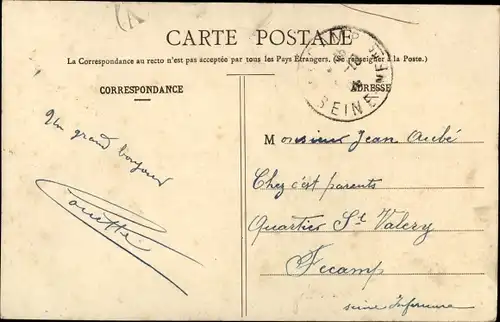 CARTE POSTALE
La Correspondance au recto n'est pas acceptée par tous les Pays Étrangers. (Se renseigner à la Poste.)
CORRESPONDANCE
ADRESSE
SEINE
Un grand bonjour
Monsieur Jean Aubé
Chez c'est parents
Quartier St Valery
Fecamp
seine Inferieure